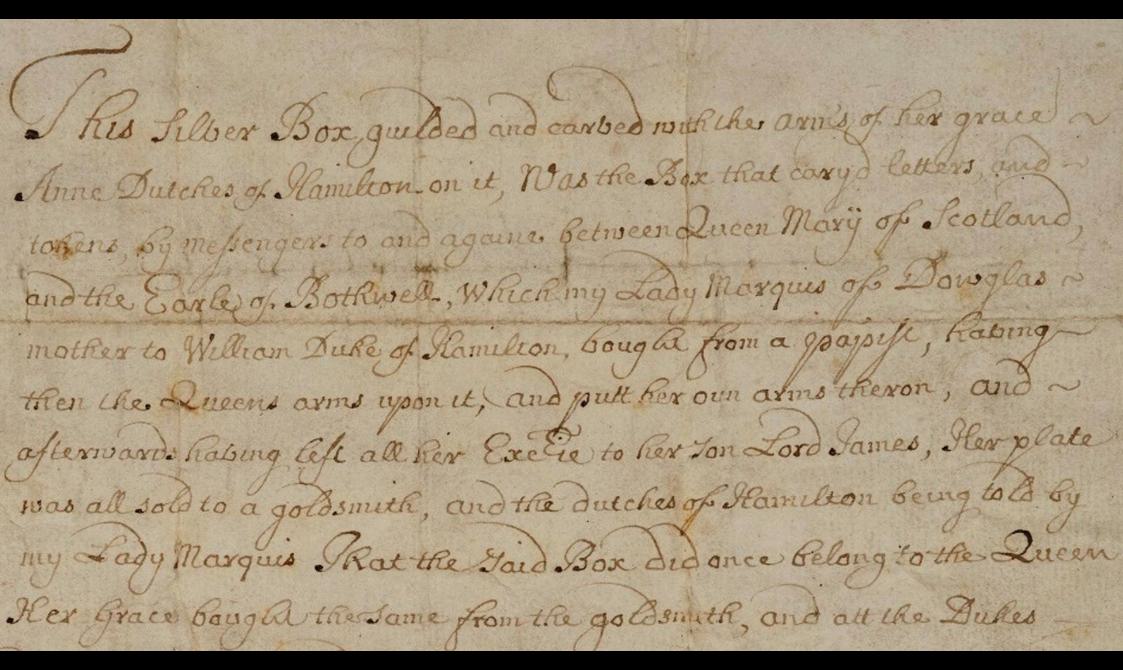 This Silver Box, guilded and carved with the arms of her grace ~
Anne Dutches of Hamilton on it, Was the Box that cary'd letters, and ~
tokens, by messengers to and againe between Queen Marÿ of Scotland,
and the Earle of Bothwell, Which my Lady Marquis of Dowglas ~
mother to William Duke of Hamilton, bought from a papist, having ~
then the Queens arms upon it, and putt her oun arms theron, and ~
afterwards having left all her Exec̄ie to her son Lord James, Her plate
was all sold to a goldsmith, and the dutches of Hamilton being told by
my Lady Marquis That the said Box did once belong to the Queen
Her Grace bought the same from the goldsmith, and att the Dukes